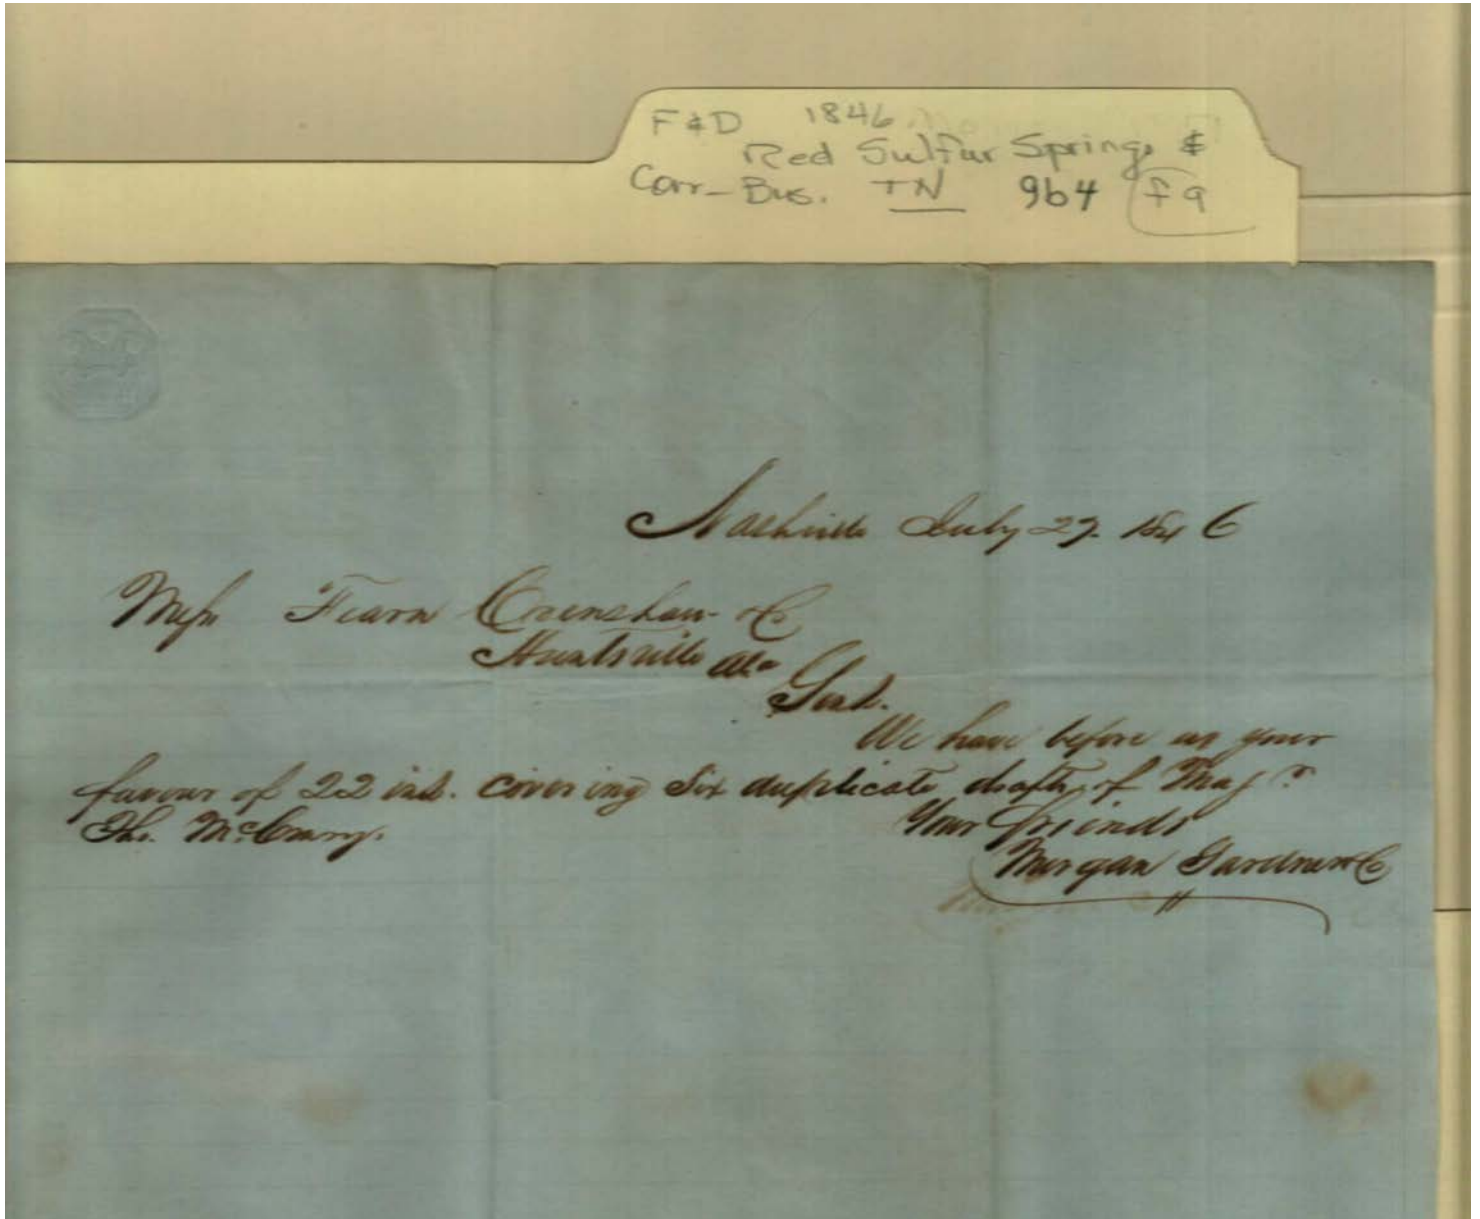 F&D 1846
Red Sulfur Springs &
Corr-Bus. TN 9b4 f9
Nashville July 27. 1846
Messrs Fearn Crenshaw & Co
Huntsville Ala
Gent.
We have before us your
favour of 22 inst. covering Six duplicate drafts of Majr.
Tho. McCrary.
Your friends
Morgan Gardner & Co